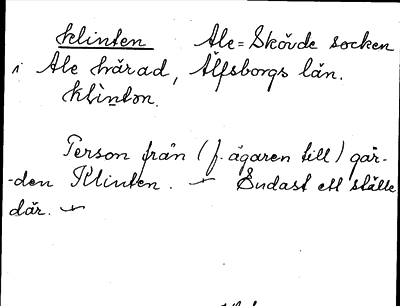 Klinten Ale=Skövde socken
i Ale härad, Älfsborgs län.
Klinton.
Person från (f. ägaren till) går-
-den Klinten. – Endast ett ställe
där. –